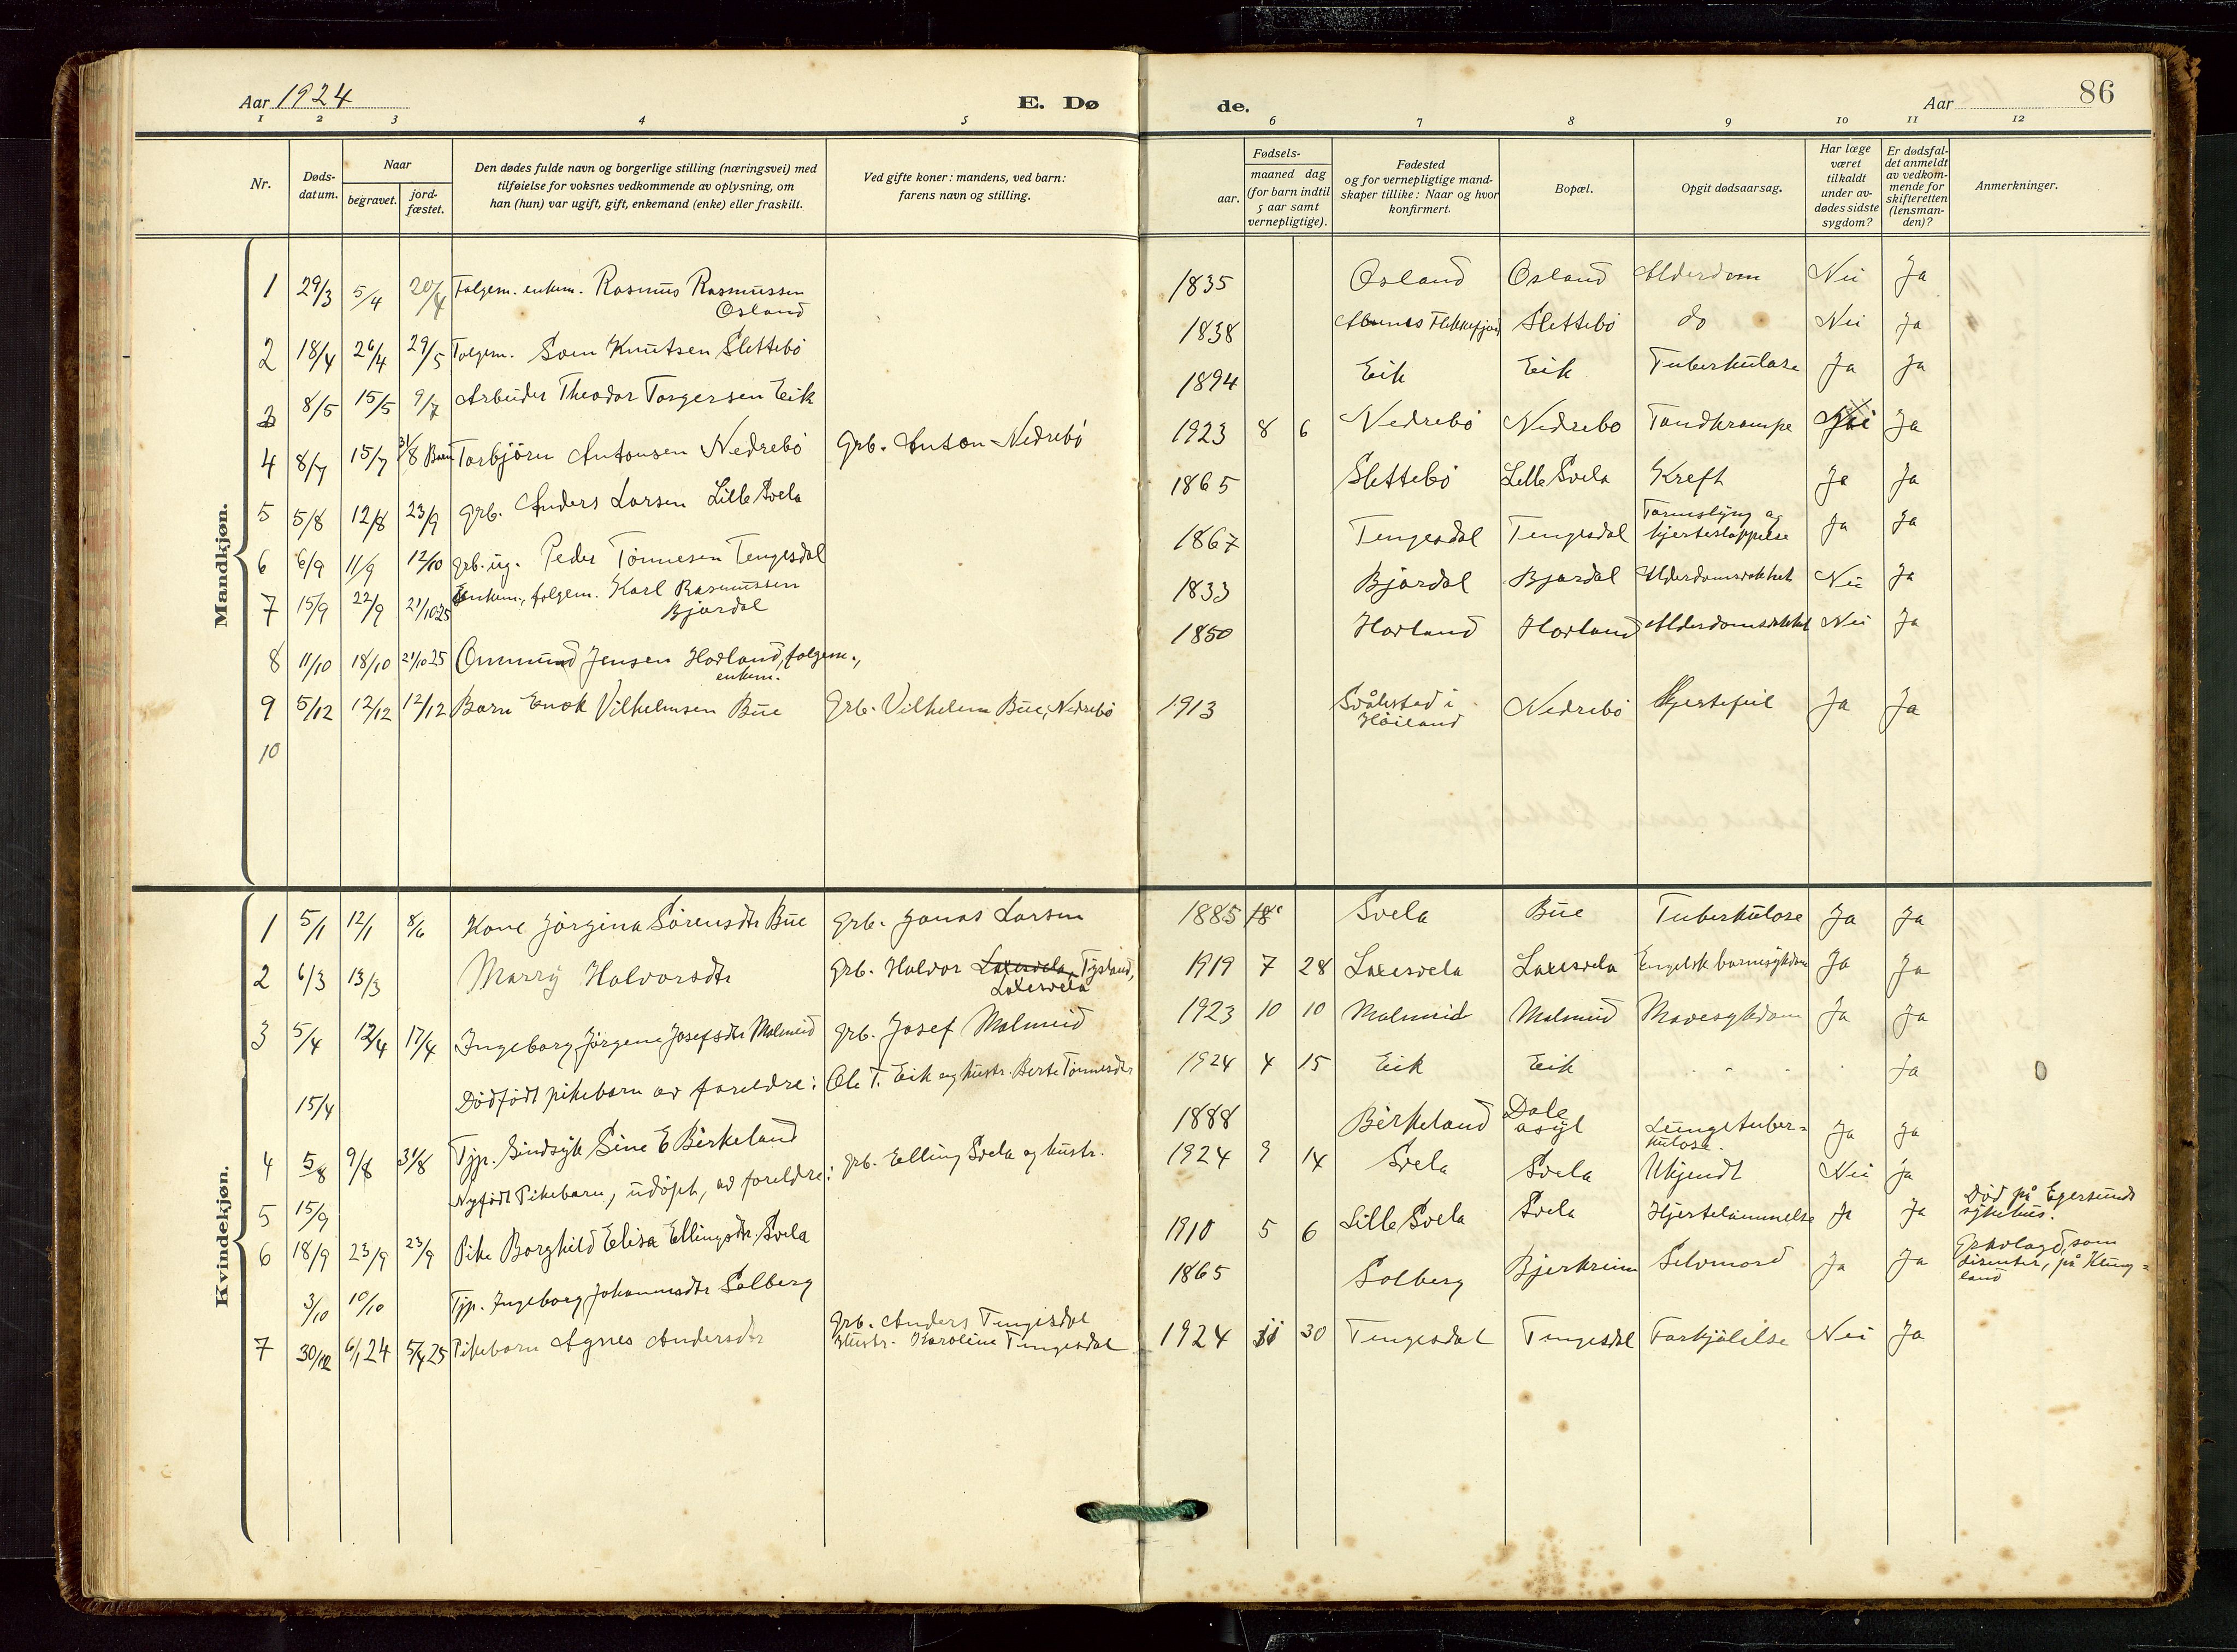 Aar 1924
E. Dø
de.
Aar
86
1 2 3 4 5 6 7 8 9 10 11 12
Nr.
Døds-
datum.
Naar
begravet.
jord-
fæstet.
Den dødes fulde navn og borgerlige stilling (næringsvei) med
tilføielse for voksnes vedkommende av oplysning, om
han (hun) var ugift, gift, enkemand (enke) eller fraskilt.
Ved gifte koner: mandens, ved barn:
farens navn og stilling.
Fødsels-
aar.
maaned dag
(for barn indtil
5 aar samt
vernepligtige).
Fødested
og for vernepligtige mand-
skaper tillike: Naar og hvor
konfirmert.
Bopæl.
Opgit dødsaarsag.
Har læge
været
tilkaldt
under av-
dødes sidste
sygdom?
Er dødsfal-
det anmeldt
av vedkom-
mende for
skifteretten
(lensman-
den)?
Anmerkninger.
Mandkjøn.
1 29/3 5/4 20/4 Folgem. enkem. Rasmus Rasmussen
Osland
1835 Osland Osland Alderdom Nei Ja
2 18/4 26/4 29/5 Folgem. Soen Knutsen Slettebö
1838 Flekkefjord Slettebö do Nei Ja
3 8/5 15/5 9/7 Arbeider Theodor Torgersen Eik
1894 Eik Eik Tuberkulose Ja Ja
4 8/7 15/7 31/8 Barn Torbjörn Antonsen Nedrebö Grb. Anton Nedrebö
1923 8 6 Nedrebö Nedrebö Tandkrampe Ja
5 5/8 12/8 23/9 grb. Anders Larsen Lille Svela
1865 Slettebö Lille Svela Kreft Ja Ja
6 6/9 11/9 12/10 grb. ug. Peder Tönnesen Tengesdal
1867 Tengesdal Tengesdal Tarmslyng og
hjerteslappelse Ja Ja
7 15/9 22/9 21/10 25 Enkem., folgem. Karl Rasmussen
Bjordal
1833 Bjordal Bjordal Alderdomsvakhet Nei Ja
8 11/10 18/10 21/10 25 Ommund Jensen Hovland, folgem.,
enkem.
1850 Hovland Hovland Alderdomsvakhet Nei Ja
9 5/12 12/12 12/12 Barn Enok Vilhelmsen Bue Grb. Vilhelm Bue, Nedrebö
1913 Svålestad i
Höiland Nedrebö Hjertefeil Ja Ja
10
Kvindekjøn.
1 5/1 12/1 8/6 Kone Jörgina Sörensdtr Bue Grb. Jonas Larsen
1885 18 Svela Bue Tuberkulose Ja Ja
2 6/3 13/3 Marry Halvorsdtr Grb. Halvor Laxesvela Tysland,
Laxesvela
1919 7 28 Laxesvela Laxesvela Engelsk barnesykdom Ja Ja
3 5/4 12/4 17/4 Ingeborg Jörgine Josefsdtr Malmeid grb. Josef Malmeid
1923 10 10 Malmeid Malmeid Mavesykdom Ja Ja
15/4 Dödfödt pikebarn av foreldre: Ole T. Eik og hustr. Berte Tönnesdtr
1924 4 15 Eik Eik Ja 0
4 5/8 9/8 31/8 Tjp. Sindsyk Sine E Birkeland
1888 Birkeland Dale
asyl Lungetuber-
kulose. Ja Ja
5 15/9 Nyfödt Pikebarn, udöpt, av foreldre: grb. Elling Svela og hustr.
1924 9 14 Svela Svela Ukjendt Nei Ja
6 18/9 23/9 23/9 Pike Borghild Elisa Ellingsdtr. Svela
1910 5 6 Lille Svela Svela Hjertelammelse Ja Ja Död på Egersunds
sykehus.
3/10 10/10 Tjp. Ingeborg Johannesdtr Solberg
1865 Solberg Bjerkreim Selvmord Ja Ja som
disenter, på Klung-
land
7 30/12 6/1 24 5/4 25 Pikebarn Agnes Andersdtr Grb. Anders Tengesdal
Hustr. Karoline Tengesdal
1924 11 30 Tengesdal Tengesdal Forkjölelse Nei Ja